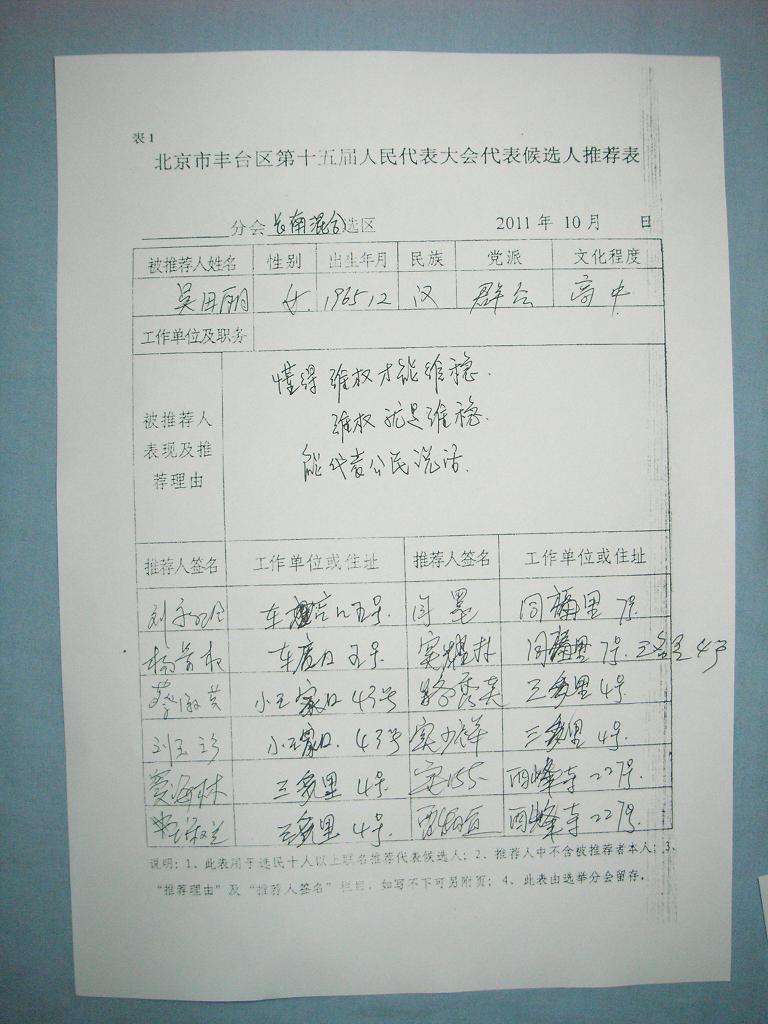 表1
北京市丰台区第十五届人民代表大会代表候选人推荐表
分会 长南混合选区 2011 年 10 月 日
被推荐人姓名 性别 出生年月 民族 党派 文化程度
吴田丽 女 1965,12 汉 群众 高中
工作单位及职务
懂得维权才能维稳.
维权就是维稳.
能代表公民说话.
被推荐人
表现及推
荐理由
推荐人签名 工作单位或住址 推荐人签名 工作单位或住址
五号. 闫墨 同福里 7号
五号. 同福里 7号. 三多里 4号
蔡淑英 小王家口 43号 三多里 4号
刘玉珍 小王家口. 43号 三多里 4号.
贾海林 三多里 4号 227号.
三多里 4号. 227号.
说明：1、此表用于选民十人以上联名推荐代表候选人；2、推荐人中不含被推荐者本人；3、
“推荐理由”及“推荐人签名”栏目，如写不下可另附页；4、此表由选举分会留存.